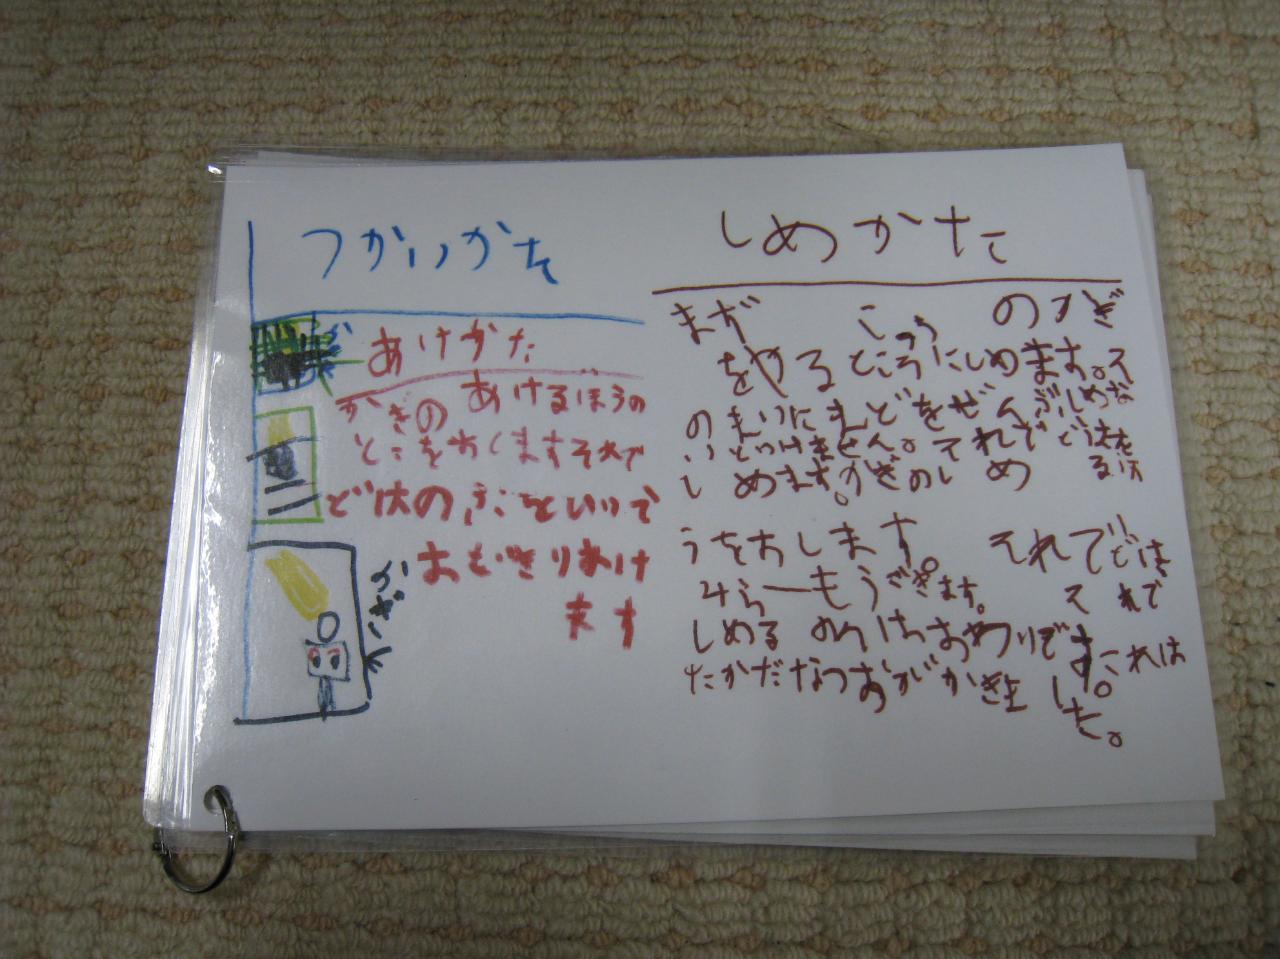 つかいかた
あけかた
かぎの あけるほうの
とこをおしますそれで
どはの をといいで
おもいきりあけ
ます
かぎ
しめかた
まず こっち のかぎ
をやるところにしめます。そ
のまいにまどをぜんぶしめな
いといけません。それで どはを
しめます。かぎのしめるほ
うをおします。 それでどは
みらーもうごきます。 それで
しめるのわおわりです。これは
たかだなつおがかきました。